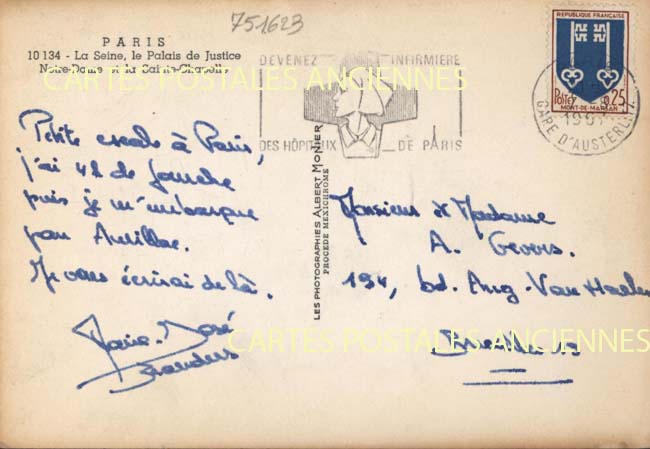 751623
PARIS
10 134 - La Seine, le Palais de Justice
Notre-Dame et la Sainte-Chapelle
DEVENEZ INFIRMIERE
DES HÔPITAUX DE PARIS
REPUBLIQUE FRANÇAISE
POSTES 0,25
MONT-DE-MARSAN
GARE D'AUSTERLITZ
CARTES POSTALES ANCIENNES
Petite escale à Paris,
j'ai 4h de
puis je m'embarque
pour Aurillac.
Je vous écrirai de là.
Marie-José
LES PHOTOGRAPHIES ALBERT MONIER
PROCEDE MEXICHROME
Monsieur & Madame
A. Gevers.
194, bd. Aug. Van Haelen
Bruxelles
CARTES POSTALES ANCIENNES